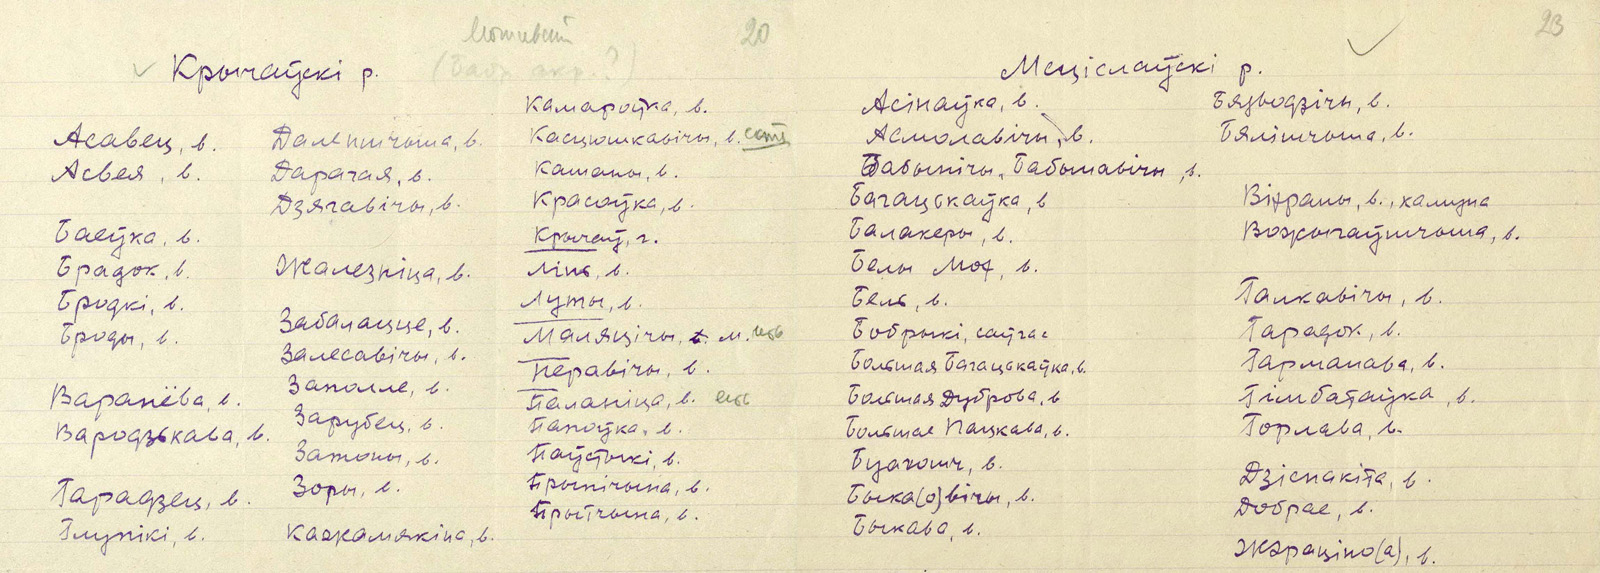 20
Крычаўскі р.
Асавец, в.
Асвея, в.
Баеўка, в.
Брадок, в.
Бродкі, в.
Броды, в.
Варанёва, в.
Вародзькава, в.
Гарадзец, в.
Глупікі, в.
Далепічошча, в.
Дарагая, в.
Дзягавічы, в.
Жалезніца, в.
Забалацце, в.
Залесавічы, в.
Заполле, в.
Зарубец, в.
Затоны, в.
Зоры, в.
Кажамякіна, в.
Камароўка, в.
Касцюшкавічы, в.
Кашаны, в.
Красоўка, в.
Крычаў, г.
Ліпь, в.
Луты, в.
Маляцічы, в. м. есь
Перавічы, в.
Паланіца, в. есь
Папоўка, в.
Паўстыкі, в.
Прыпічына, в.
Прытчына, в.
23
Мсціслаўскі р.
Асінаўка, в.
Асмолавічы, в.
Бабынічы, Бабынавічы, в.
Багацькаўка, в
Балакеры, в.
Белы Мох, в.
Бель, в.
Бобрыкі, саўгас
Большая Багацькаўка, в.
Большая Дуброва, в
Большае Пацкава, в.
Буахошч, в.
Быка(о)вічы, в.
Быкава, в.
Бязводзічы, в.
Бялішчына, в.
Віхраны, в., калізна
Вожыгаўшчына, в.
Галкавічы, в.
Гарадок, в.
Гарманава, в.
Гімбатаўка, в.
Горлава, в.
Дзіснакіта, в.
Добрае, в.
Жэраціно(а), в.